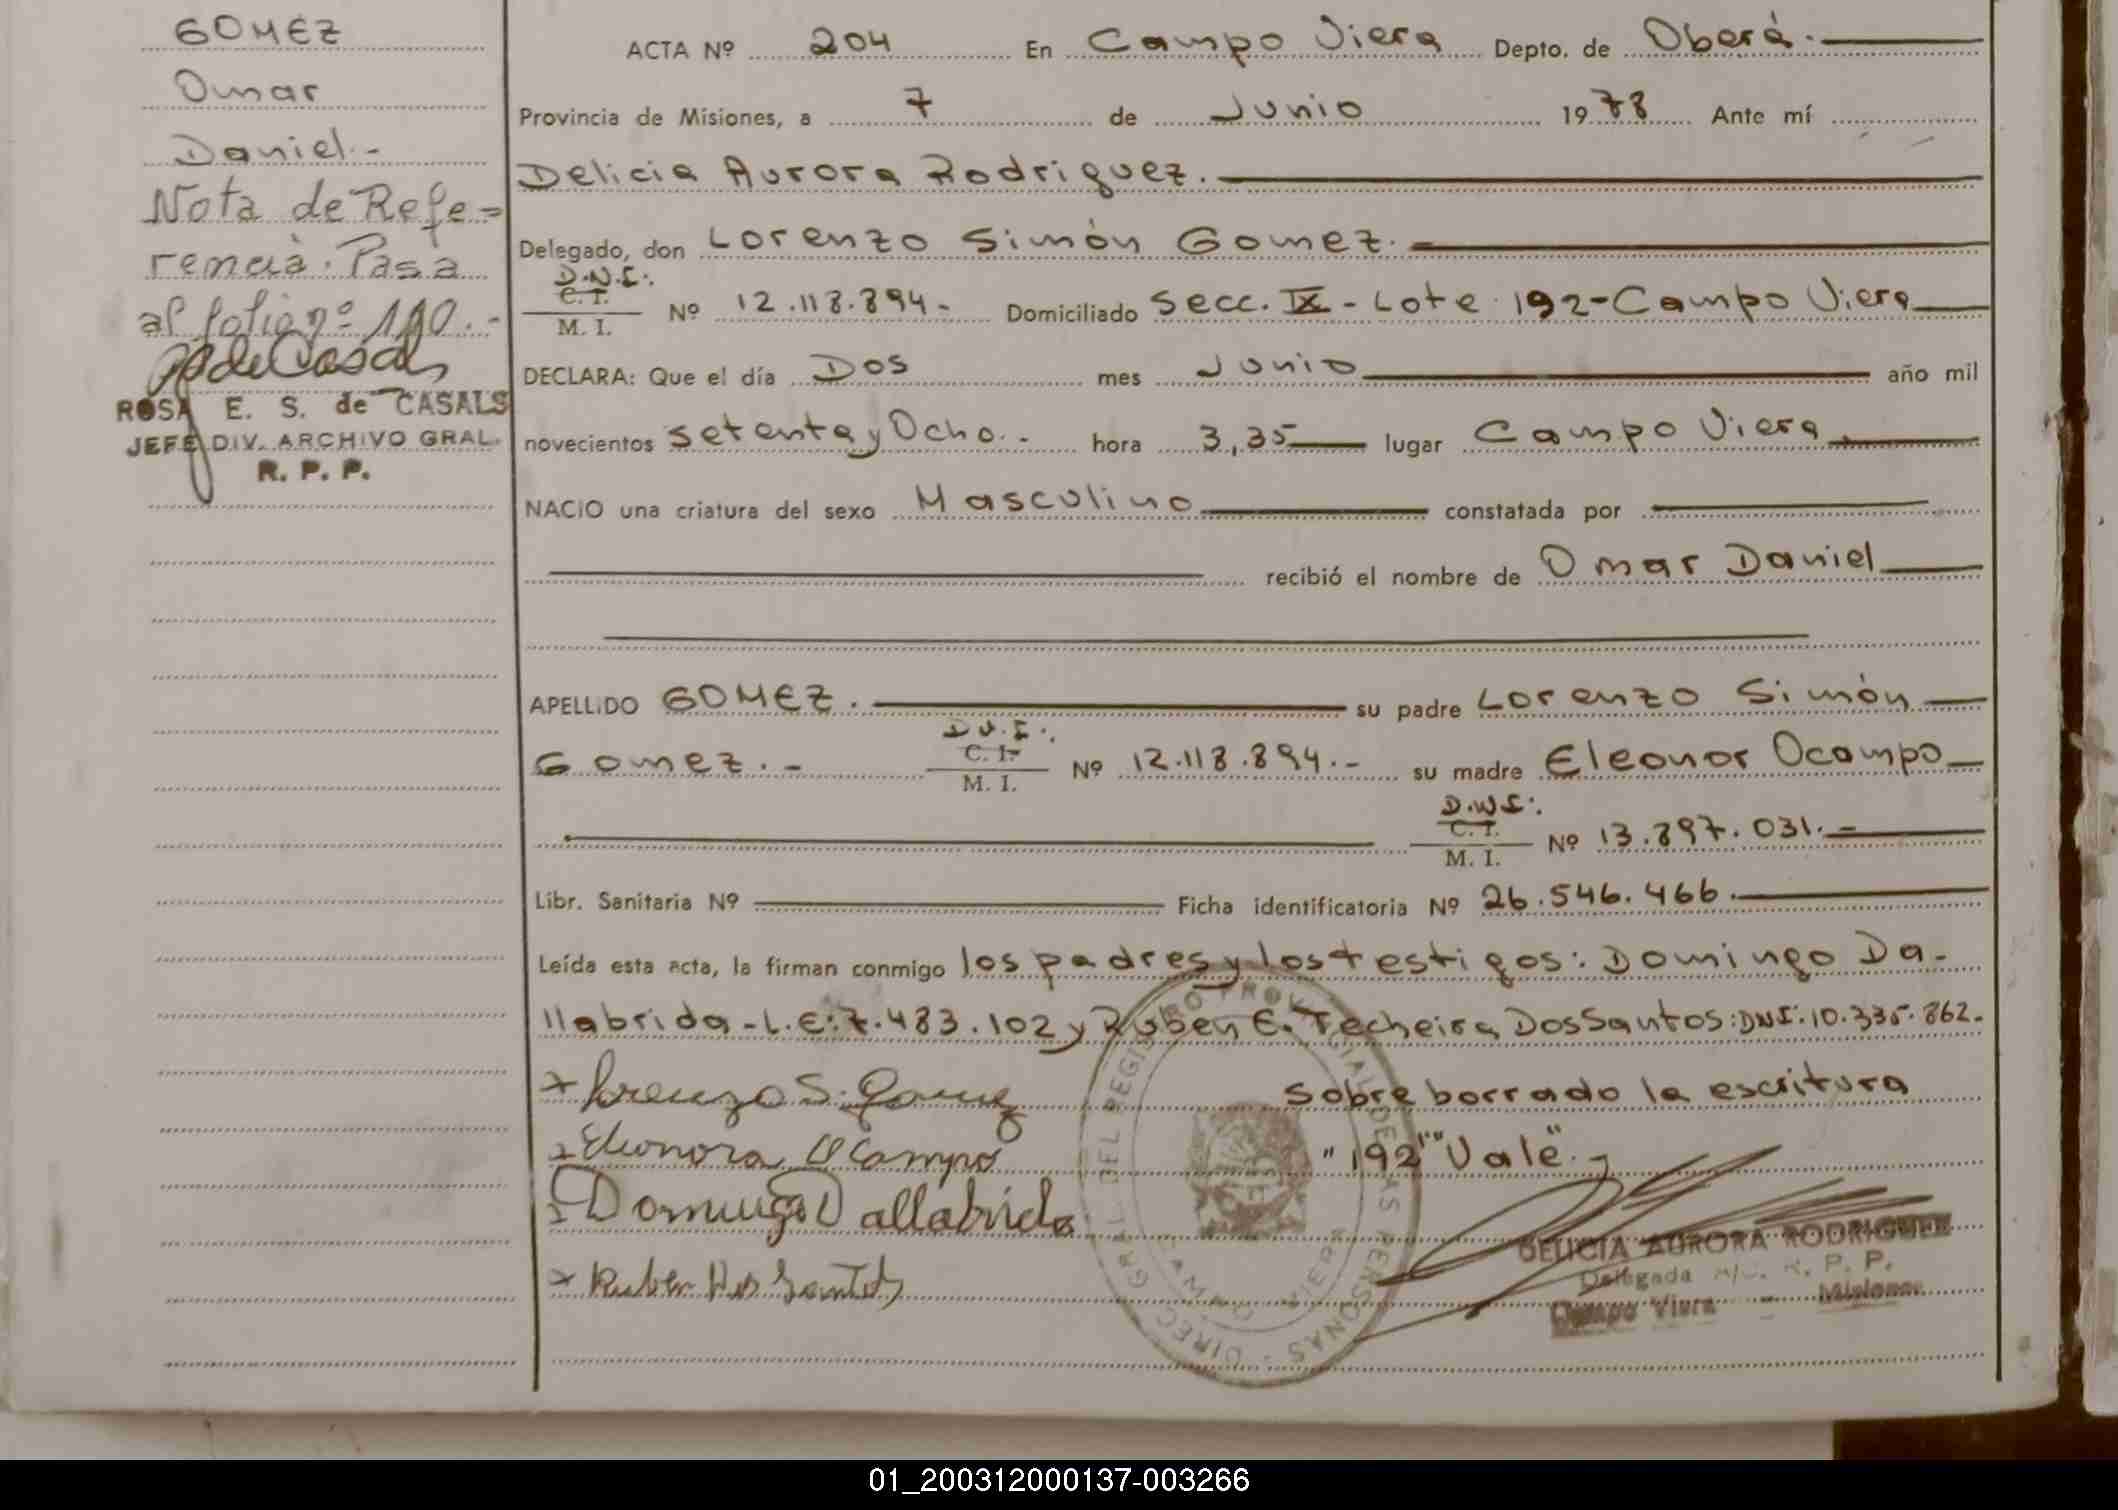 GOMEZ
Omar
Daniel.-
Nota de Refe=
rencia. Pasa
al folio nº 110.-
ROSA E. S. de CASALS
JEFE DIV. ARCHIVO GRAL.
R. P. P.
ACTA Nº 204 En Campo Viera Depto. de Oberá.
Provincia de Misiones, a 7 de Junio 1978 Ante mí
Delicia Aurora Rodriguez.
Delegado, don Lorenzo Simón Gomez.
D.N.I:.
C. I.
M. I.
Nº 12.118.894.- Domiciliado Secc. IX - Lote 192-Campo Viera
DECLARA: Que el día Dos mes Junio año mil
novecientos setenta y Ocho.. hora 3,35 lugar Campo Viera
NACIO una criatura del sexo Masculino constatada por
recibió el nombre de Omar Daniel
APELLIDO GOMEZ. su padre Lorenzo Simón
D.N.I:.
Gomez.- C. I. Nº 12.118.894.- su madre Eleonor Ocampo
M. I.
D.N.I:.
C. I. Nº 13.897.031.-
M. I.
Libr. Sanitaria Nº Ficha identificatoria Nº 26.546.466.
Leída esta acta, la firman conmigo los padres y los testigos: Domingo Da-
llabrida-L.E:7.483.102 y Ruben E. Techeira DosSantos:DNI:10.335.862.
x Lorenzo S. Gomez
Sobre borrado la escritura
x Eleonora Ocampo
"192" "Vale".
x Domingo Dallabrida
x Ruben Dos Santos
DIREC. GRAL. DEL REGISTRO PROVINCIAL DE LAS PERSONAS
CAMPO VIERA
DELICIA AURORA RODRIGUEZ
Delegada R. P. P.
Campo Viera - Misiones
01_200312000137-003266